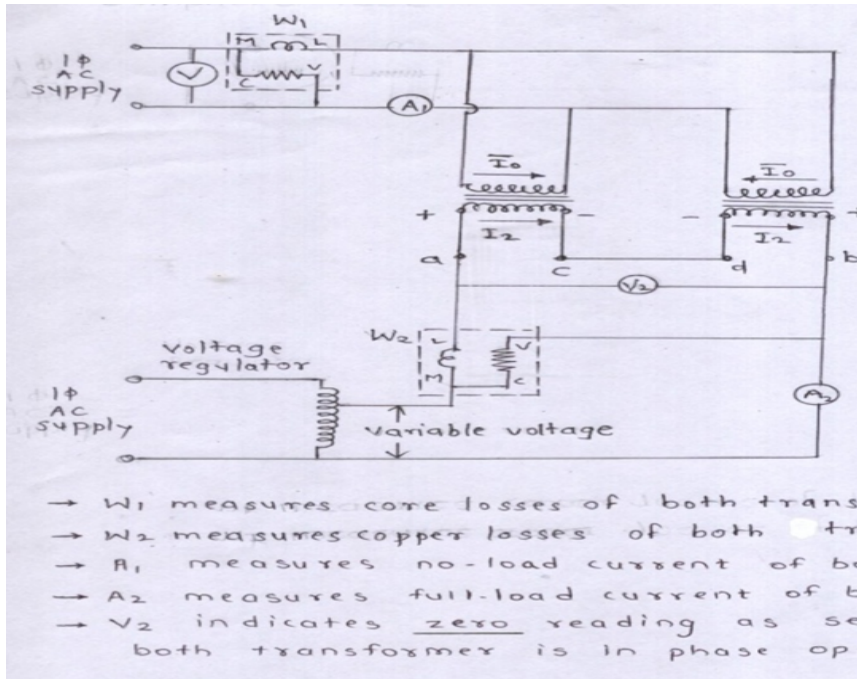 W1
M L
C V
1ϕ
AC
supply
V
A1
I̅o I̅o
+ - - +
I2 I2
a c d b
V2
W2
L V
M C
Voltage
regulator
1ϕ
AC
supply
variable voltage
A2
→ W1 measures core losses of both trans
→ W2 measures copper losses of both tr
→ A1 measures no-load current of b
→ A2 measures full-load current of b
→ V2 indicates zero reading as se
both transformer is in phase op